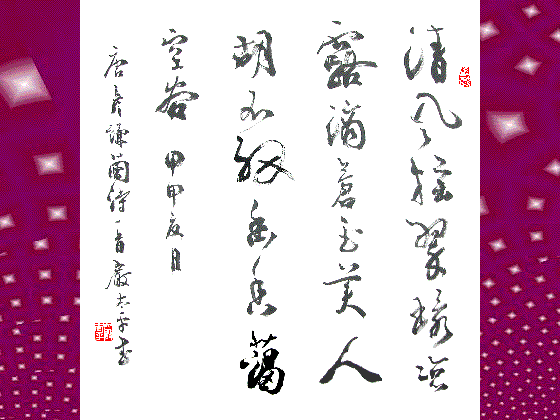 清风搖翠環凉
露滴蒼玉美人
胡不紉幽香藹
空谷 甲申夏日
唐彥謙蘭詩一首嚴太平書